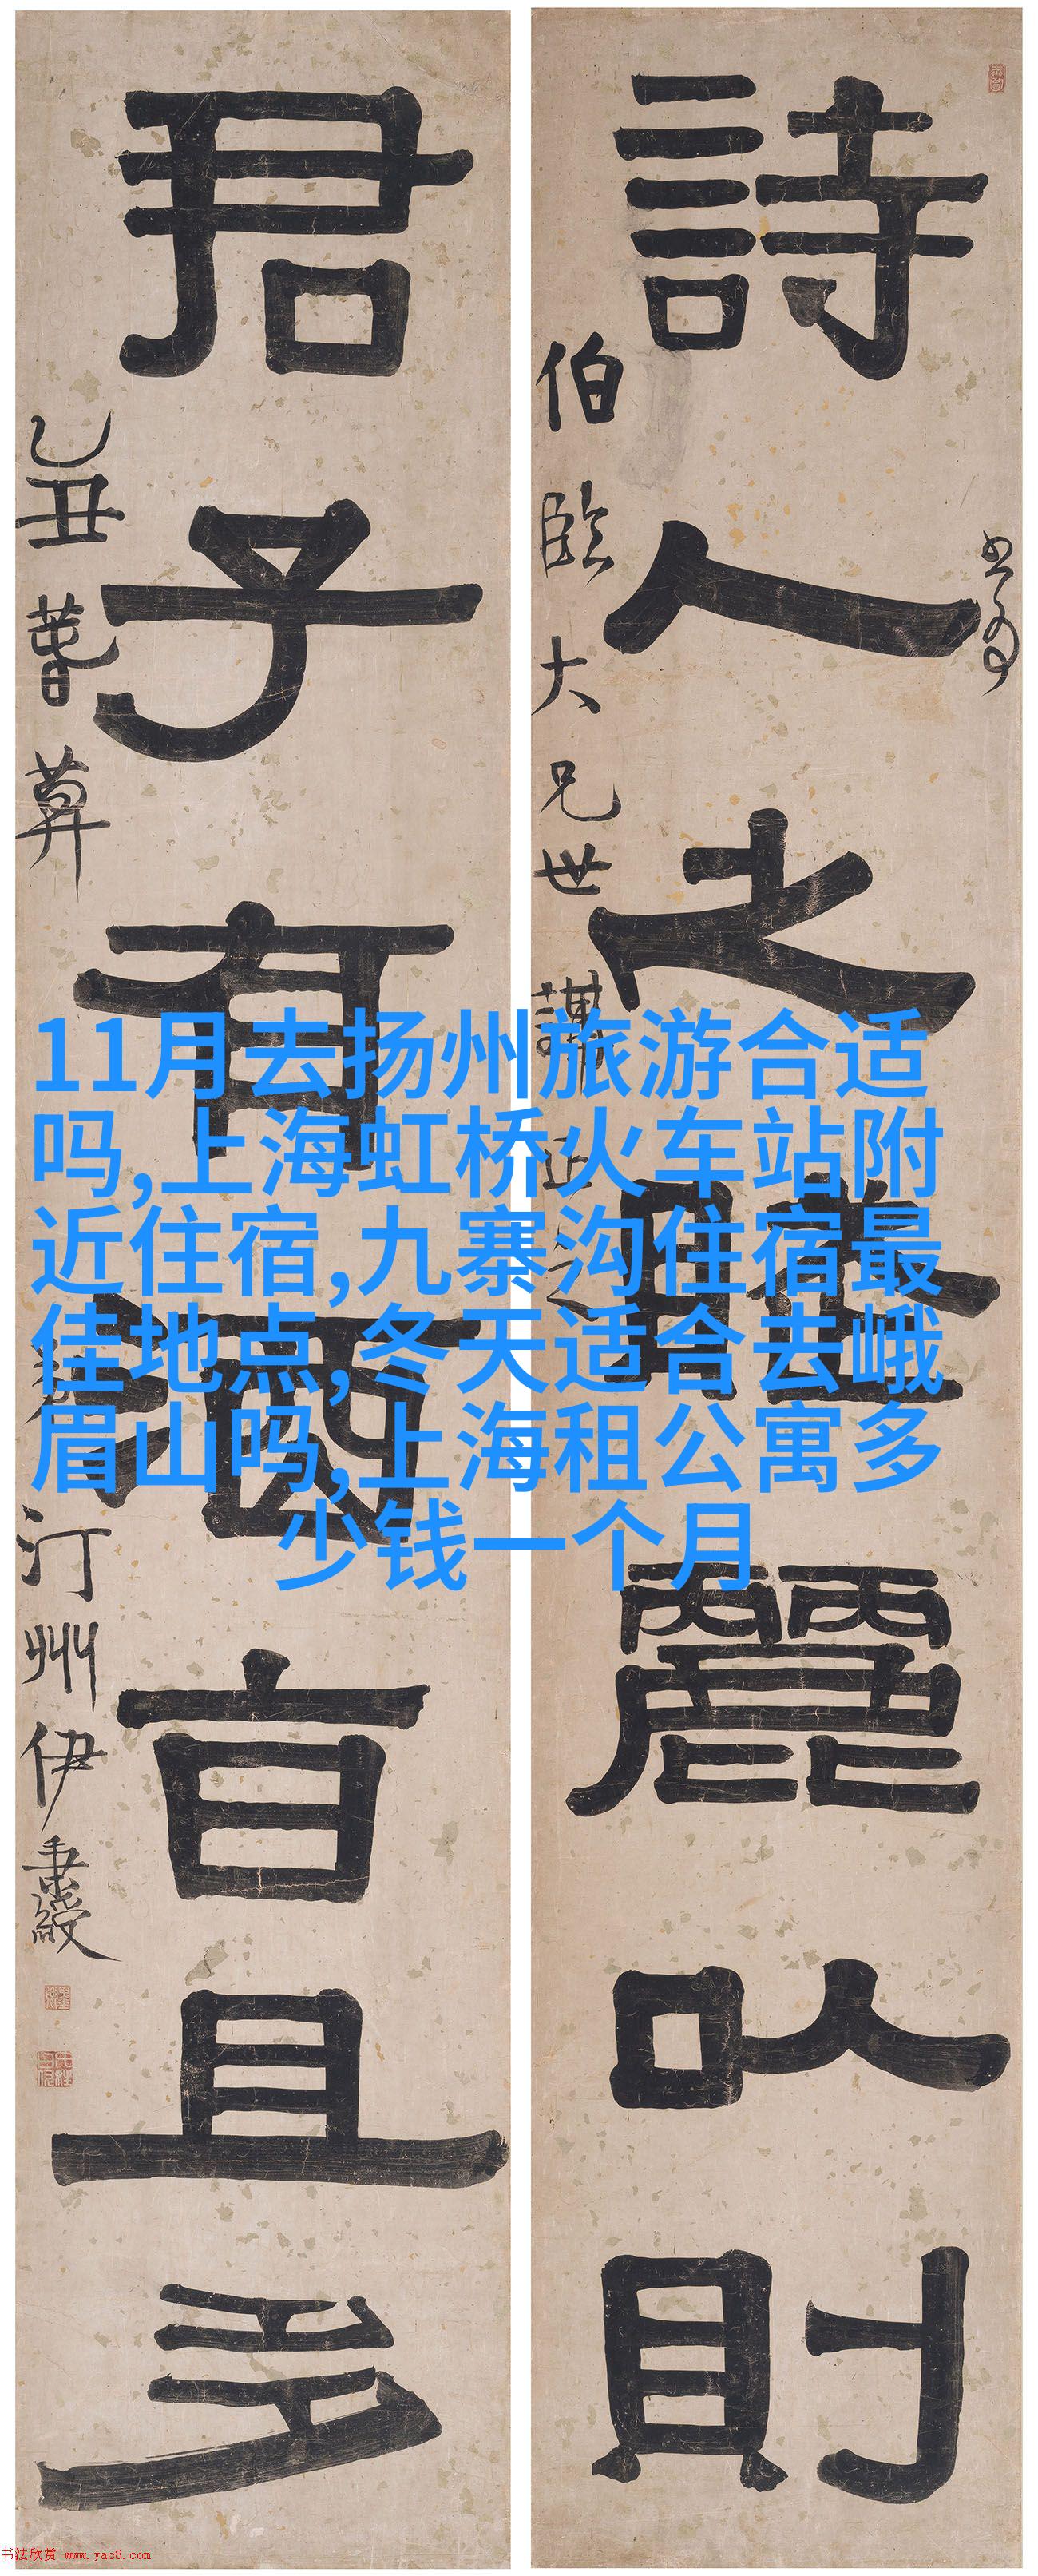 詩人之麗以則
伯臨大兄世講正之
君子有酒旨且多
乙丑
汀州伊秉綬
11月去扬州旅游合适
吗,上海虹桥火车站附
近住宿,九寨沟住宿最
佳地点,冬天适合去峨
眉山吗,上海租公寓多
少钱一个月
书法欣赏 www.yac8.com